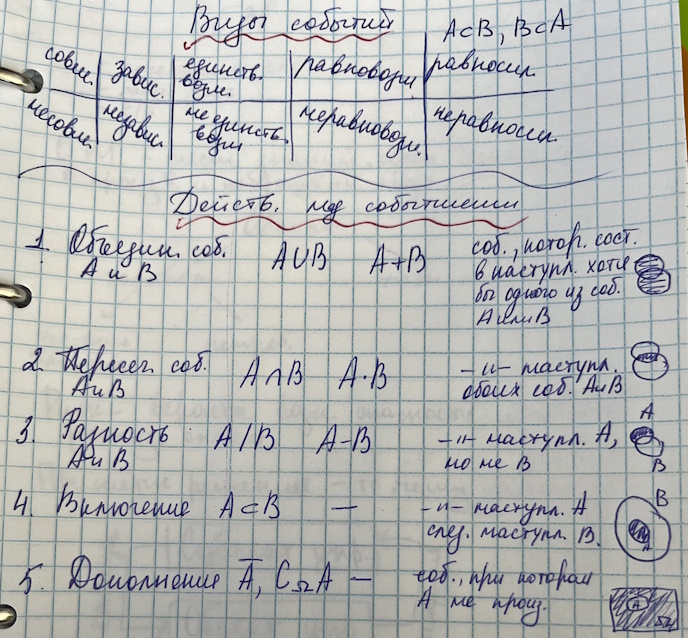 Виды событий
A⊂B, B⊂A
совм. завис. единств. возм. равновозм. равносил.
несовм. независ. не единств. возм. неравновозм. неравносил.
Действ. над событиями
1. Объедин. соб. A∪B A+B соб., котор. сост.
A и B в наступл. хотя
бы одного из соб.
A или B
2. Пересеч. соб. A∩B A·B -"- наступл.
A и B обоих соб. A и B
3. Разность A/B A-B -"- наступл. A,
A и B но не B
A
B
4. Включение A⊂B — -"- наступл. A
след. наступл. B.
B
A
5. Дополнение A̅, C_ΩA — соб., при котором
A не произ.
A
Ω